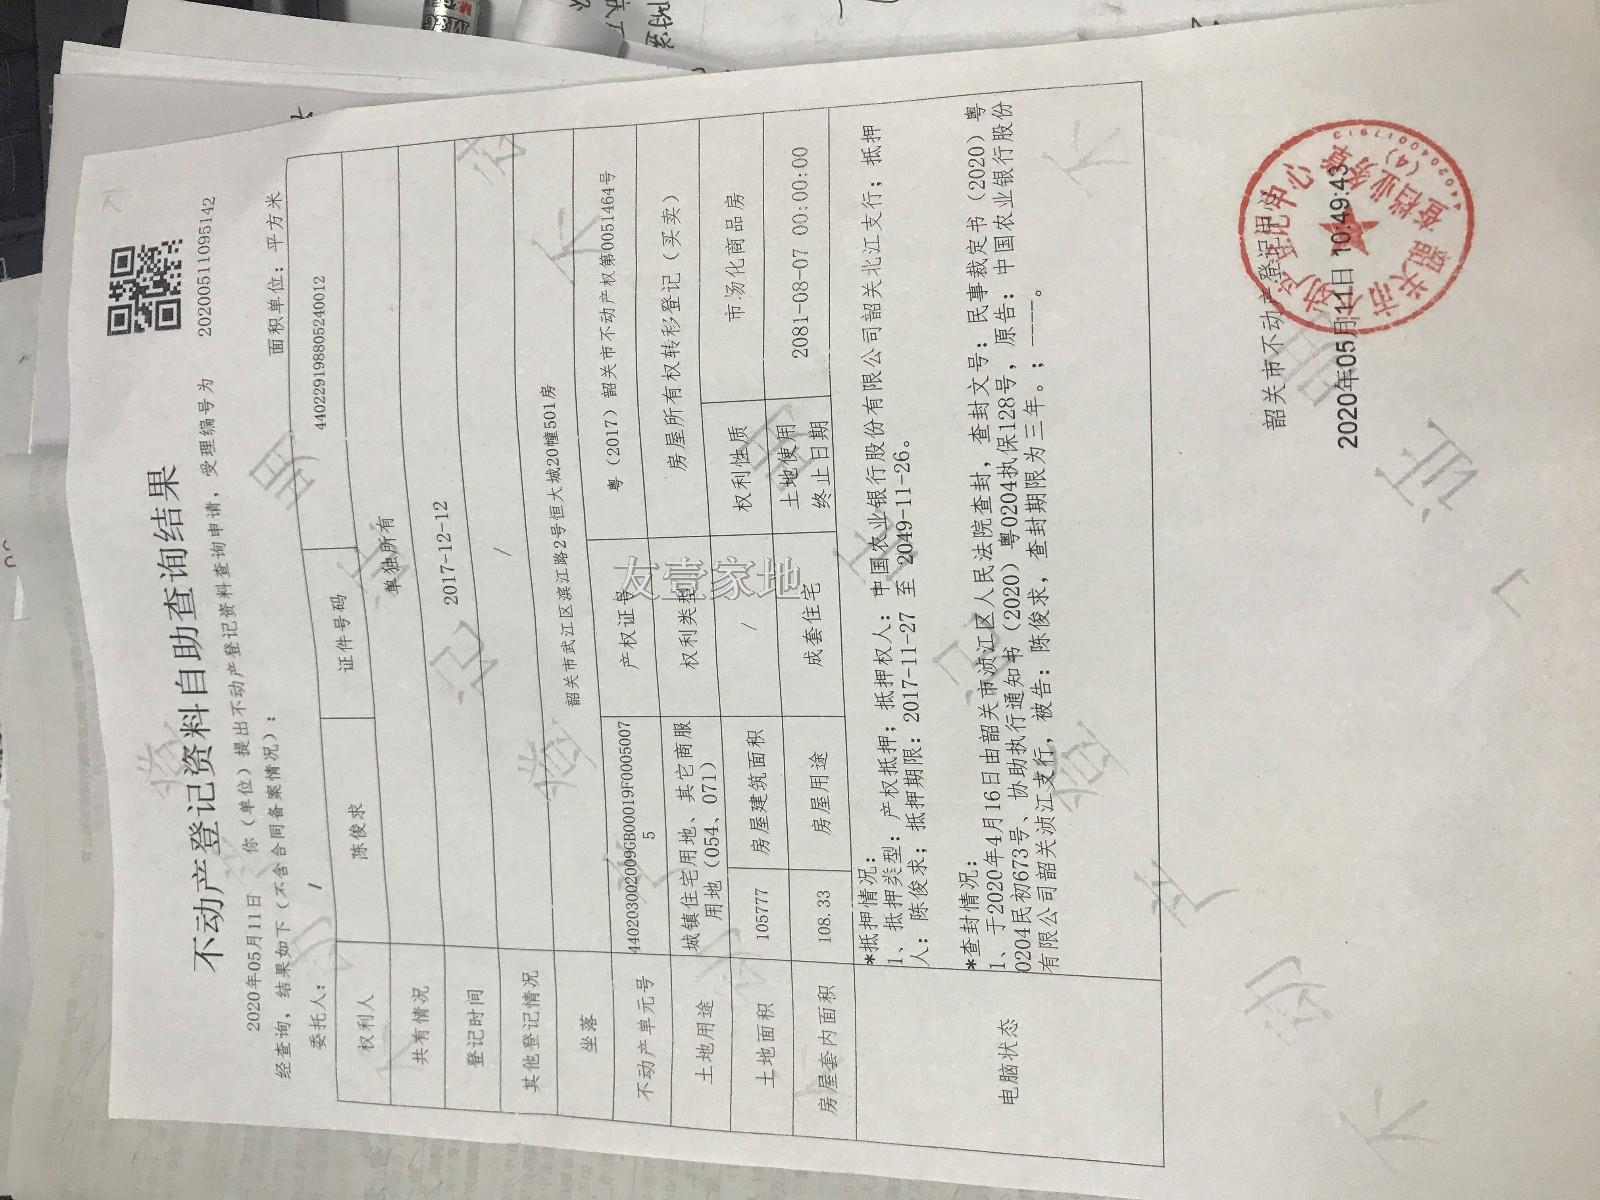 不动产登记资料自助查询结果
2020年05月11日 你（单位）提出不动产登记资料查询申请，受理编号为 20200511095142
经查询，结果如下（不含合同备案情况）：
委托人： / 面积单位：平方米
权利人 陈俊求 证件号码 440229198805240012
共有情况 单独所有
登记时间 2017-12-12
其他登记情况 /
坐落 韶关市武江区滨江路2号恒大城20幢501房
不动产单元号 440203002009GB00019F00050075 产权证号 粤（2017）韶关市不动产权第0051464号
土地用途 城镇住宅用地、其它商服用地（054、071） 权利类型 房屋所有权转移登记（买卖）
土地面积 105777 房屋建筑面积 / 权利性质 市场化商品房
房屋套内面积 108.33 房屋用途 成套住宅 土地使用终止日期 2081-08-07 00:00:00
电脑状态
*抵押情况：
1、抵押类型：产权抵押；抵押权人：中国农业银行股份有限公司韶关北江支行；抵押
人：陈俊求；抵押期限：2017-11-27 至 2049-11-26。
*查封情况：
1、于2020年4月16日由韶关市浈江区人民法院查封，查封文号：民事裁定书（2020）粤
0204民初673号、协助执行通知书（2020）粤0204执保128号，原告：中国农业银行股份
有限公司韶关浈江支行，被告：陈俊求，查封期限为三年。；----。
韶关市不动产登记中心
2020年05月11日 10:49:43
韶关市不动产登记中心
查档业务章
(4)
友壹家地